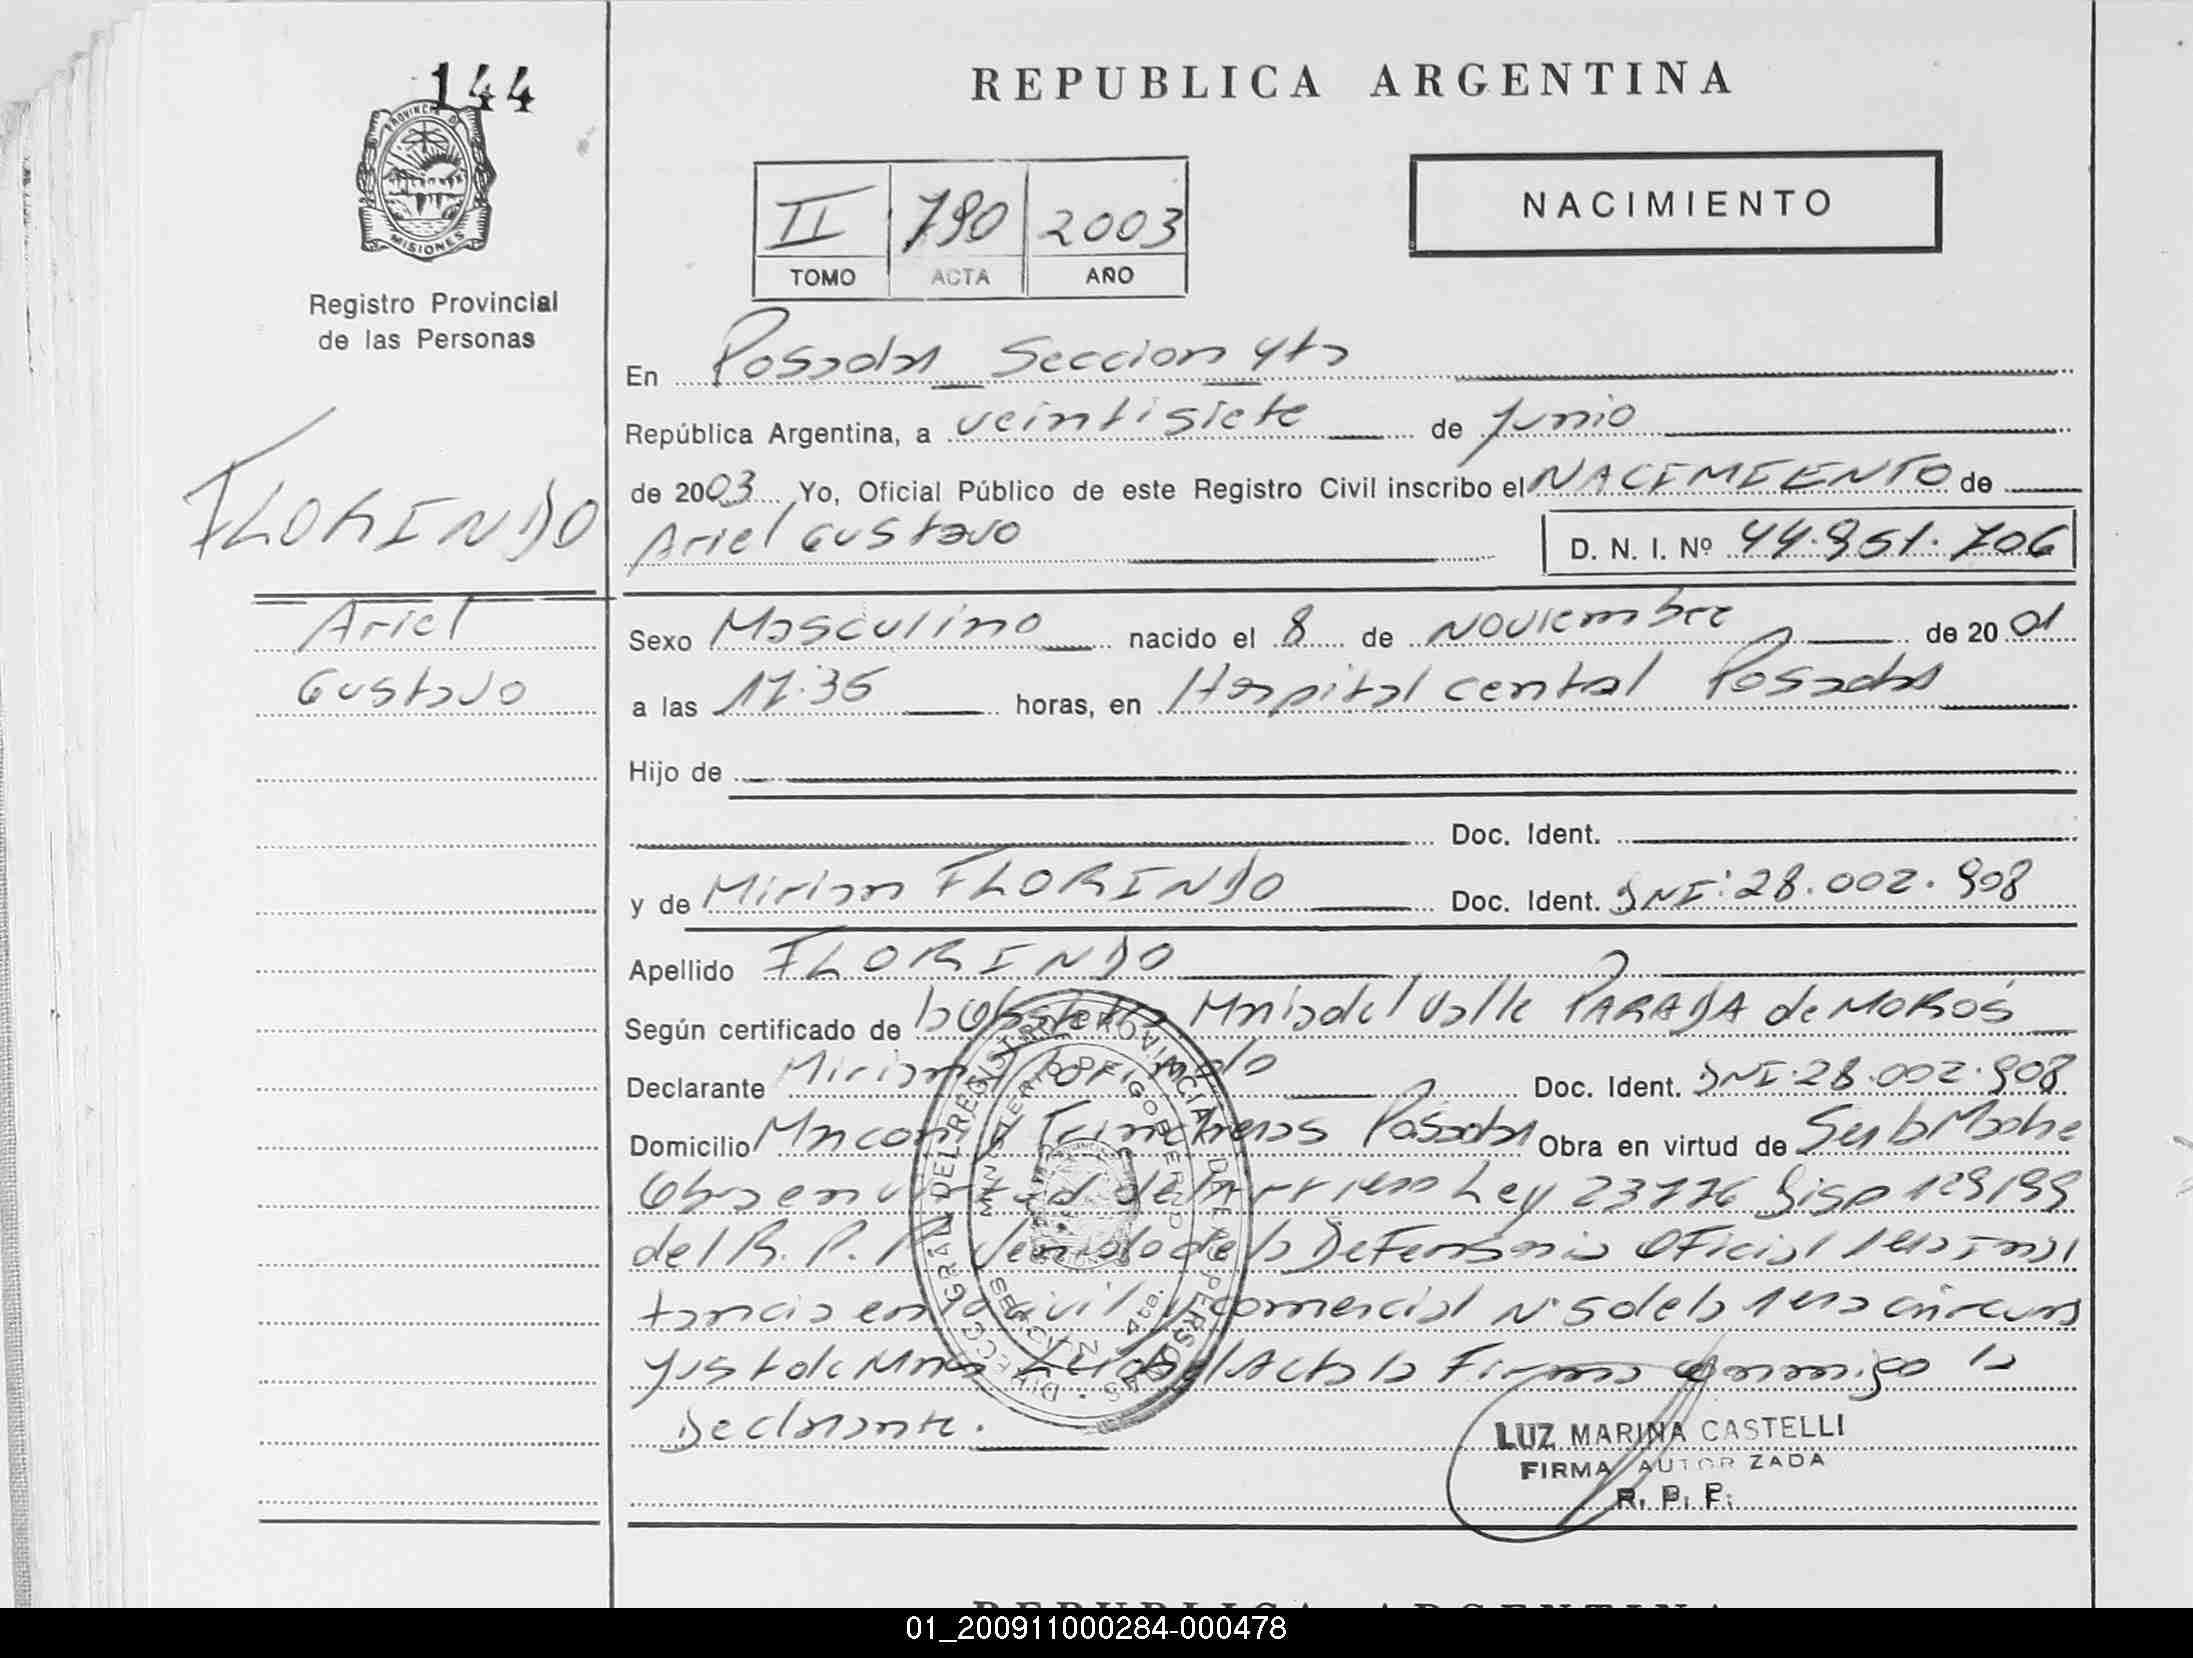 144
PROVINCIA DE
MISIONES
Registro Provincial
de las Personas
FLORINDO
Ariel
Gustavo
REPUBLICA ARGENTINA
II 790 2003
TOMO ACTA AÑO
NACIMIENTO
En Posadas Seccion 4ta
República Argentina, a veintisiete de Junio
de 2003 Yo, Oficial Público de este Registro Civil inscribo el NACIMIENTO de
Ariel Gustavo D. N. I. Nº 44.951.706
Sexo Masculino nacido el 8 de Noviembre de 2001
a las 17.35 horas, en Hospital central Posadas
Hijo de
Doc. Ident.
y de Mirian FLORINDO Doc. Ident. DNI: 28.002.908
Apellido FLORINDO
Según certificado de la Obstetra Maria del Valle PARADA de MOROS
Declarante Mirian Florindo Doc. Ident. DNI. 28.002.908
Domicilio y Trincheras Posadas Obra en virtud de Ser la Madre
Obra en virtud del Ley 23776 Disp 129/99
del R. P. P. de la Defensoria Oficial 1era Ins
tancia en lo civil y comercial Nº 5 de la 1era circuns
Just de Mnes Leida el Acta la Firma conmigo la
Declarante.
DIRECC. GRAL. DEL REGISTRO PROVINCIAL DE LAS PERSONAS
MINISTERIO DE GOBIERNO
SECCION 4ta.
LUZ MARINA CASTELLI
FIRMA AUTORIZADA
R. P. P.
REPUBLICA ARGENTINA
01_200911000284-000478